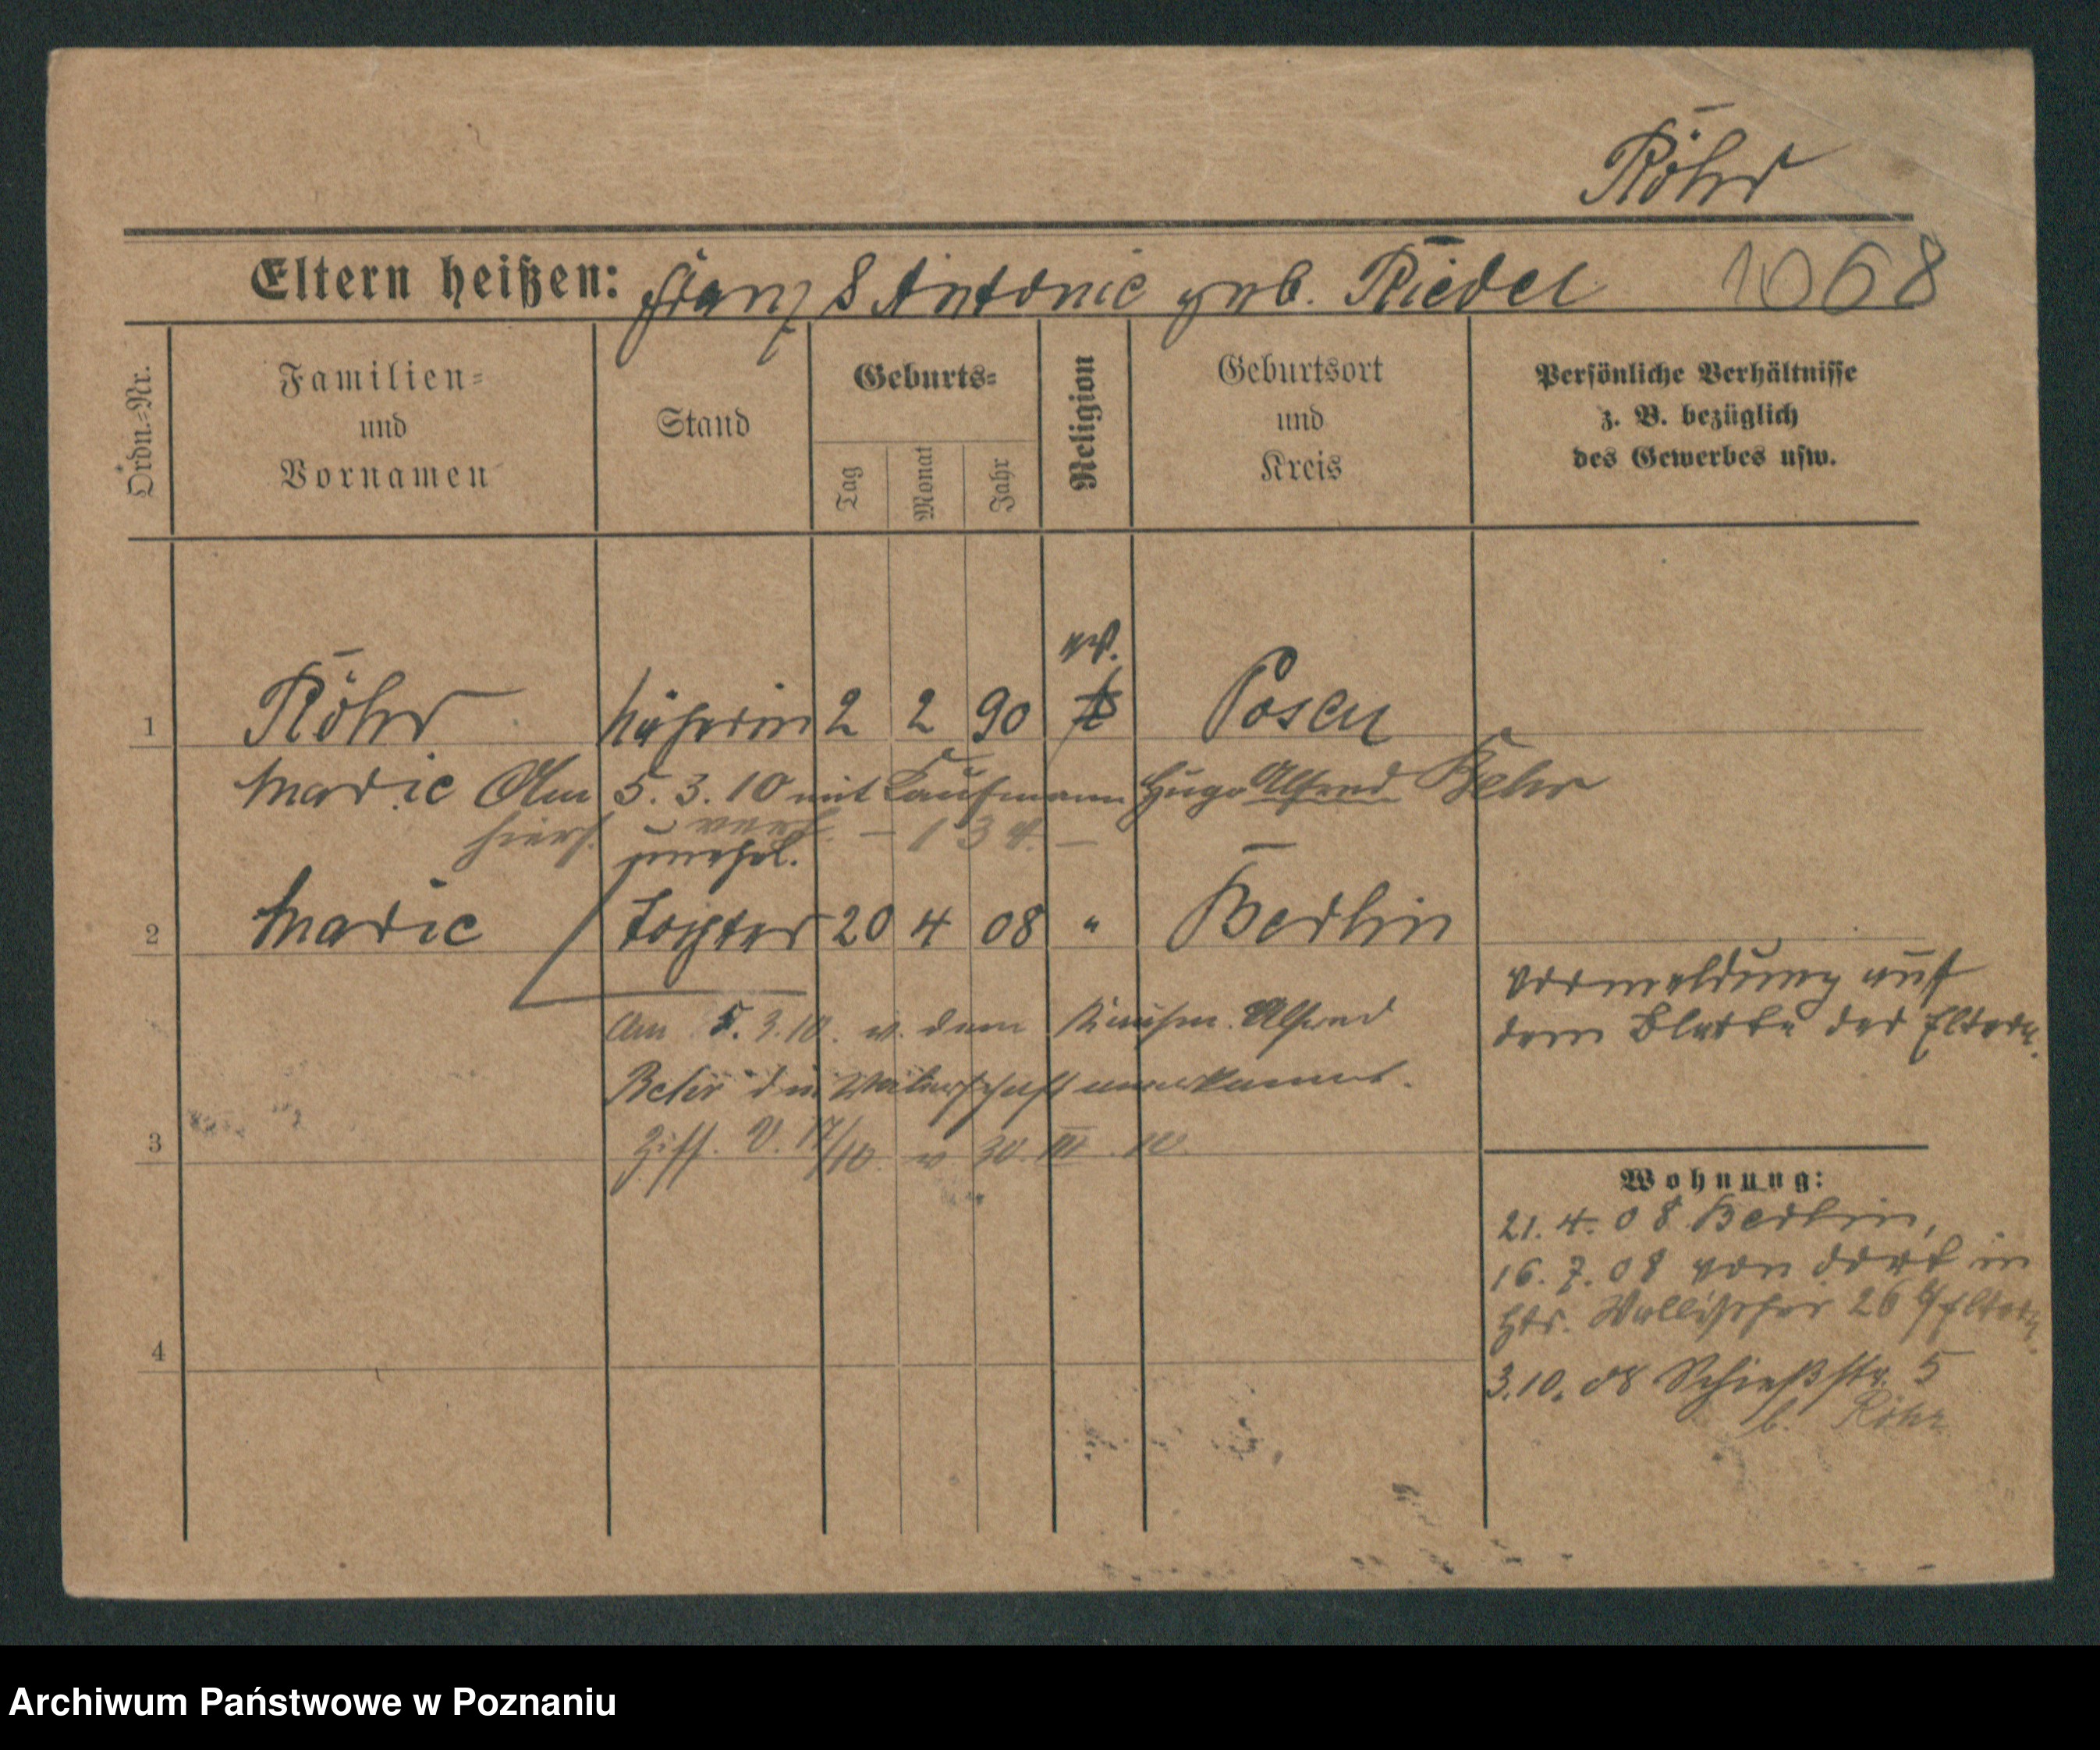 Röhr
Eltern heißen: Franz & Antonie geb. Riedel 1068
Ordn.-Nr.
Familien-
und
Vornamen
Stand
Geburts-
Tag
Monat
Jahr
Religion
Geburtsort
und
Kreis
Persönliche Verhältnisse
z. B. bezüglich
des Gewerbes usw.
ev.
1 Röhr Näherin 2 2 90 k Posen
Marie Am 5. 3. 10 mit Kaufmann Hugo Alfred Behr
hiers. verh. – 134 –
unehel.
2 Marie Tochter 20 4 08 " Berlin
Vormeldung auf
dem Blatte der Eltern.
Am 5. 3. 10. v. dem Kaufm. Alfred
Behr die Vaterschaft anerkannt.
3 Ziff. V. 17/10. v. 30. III. 10.
Wohnung:
21. 4. 08 Berlin,
16. 7. 08 von dort in
Wallischei 26 b/Eltern.
4
3. 10. 08 Schießstr. 5
b. Röhr
Archiwum Państwowe w Poznaniu